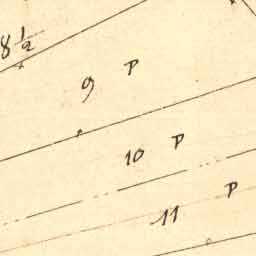 8 1/2
9 P
10 P
11 P